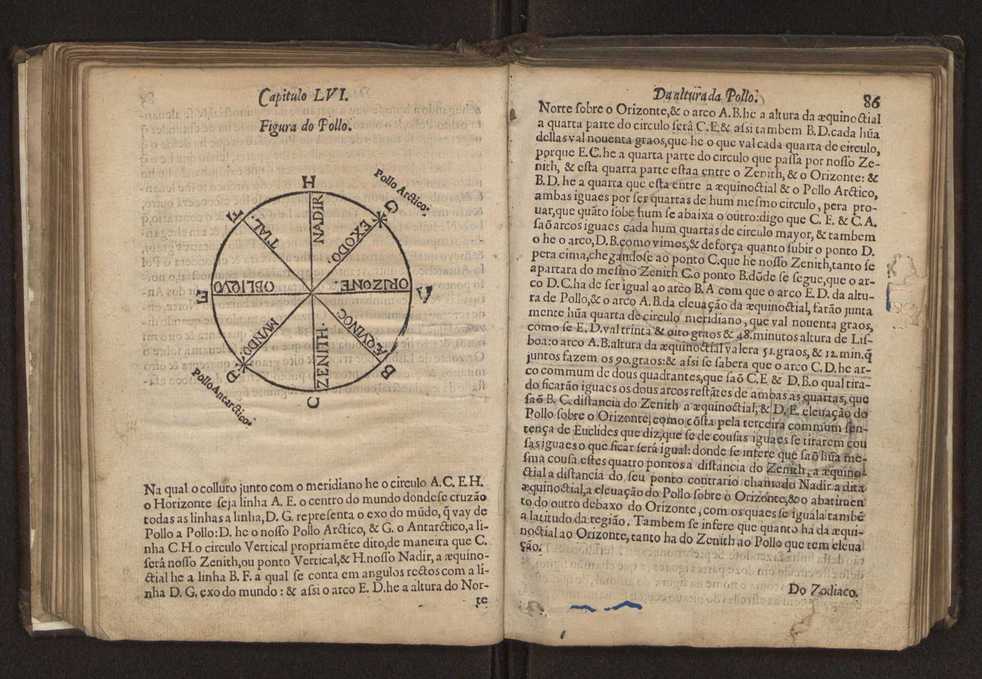 Capitulo LVI.
Figura do Pollo.
H
Pollo Arctico.
G
F
NADIR
EXODO.
TIAL.
E
OBLIQVO
ORIZONE.
A
MVNDO.
ZENITH.
ÆQVINOC
D.
B
C
Pollo Antarctico.
Na qual o colluro junto com o meridiano he o circulo A.C.E.H.
o Horizonte seja linha A. E. o centro do mundo donde se cruzão
todas as linhas a linha, D. G. representa o exo do mũdo, q̃ vay de
Pollo a Pollo: D. he o nosso Pollo Arctico, & G. o Antarctico, a li-
nha C.H. o circulo Vertical propriamẽte dito, de maneira que C.
será nosso Zenith, ou ponto Vertical, & H. nosso Nadir, a æquino-
ctial he a linha B. F. a qual se conta em angulos rectos com a li-
nha D. G. exo do mundo: & assi o arco E. D. he a altura do Nor-
te
Da altura da Pollo.
86
Norte sobre o Orizonte, & o arco A. B. he a altura da æquinoctial
a quarta parte do circulo será C. E. & assi tambem B. D. cada hũa
dellas val noventa graos, que he o que val cada quarta de circulo,
porque E.C. he a quarta parte do circulo que passa por nosso Ze-
nith, & esta quarta parte estaa entre o Zenith, & o Orizonte: &
B.D. he a quarta que esta entre a æquinoctial & o Pollo Arctico,
ambas iguaes por ser quartas de hum mesmo circulo, pera pro-
uar, que quãto sobe hum se abaixa o outro: digo que C. E. & C. A.
saõ arcos iguaes cada hum quartas de circulo mayor, & tambem
o he o arco, D.B. como vimos, & de força quanto subir o ponto D.
pera cima, chegandose ao ponto C. que he nosso Zenith, tanto se
apartara do mesmo Zenith C. o ponto B. dõde se segue, que o ar-
co D. C. ha de ser igual ao arco B. A com que o arco E. D. da altu-
ra de Pollo, & o arco A. B. da eleuação da æquinoctial, farão junta
mente hũa quarta de circulo meridiano, que val noventa graos,
como se E. D. val trinta & oito graos & 48. minutos altura de Lis-
boa: o arco A.B. altura da æquinoctial valera 51. graos, & 12. min. q̃
juntos fazem os 90. graos: & assi se sabera que o arco C. D. he ar-
co commum de dous quadrantes, que saõ C. E & D. B. o qual tira-
do ficarão iguaes os dous arcos restãtes de ambas as quartas, que
saõ B. C. distancia do Zenith a æquinoctial, & D. E. eleuação do
Pollo sobre o Orizonte, como cõsta pela terceira commum sen-
tença de Euclides que diz, que se de cousas iguaes se tirarem cou
sas iguaes o que ficar será igual: donde se infere que saõ hũa me-
sma cousa estes quatro pontos a distancia do Zenith, a æquino-
ctial a distancia do seu ponto contrario chamado Nadir a dita
æquinoctial, a eleuação do Pollo sobre o Orizonte, & o abatimen
to do outro debaxo do Orizonte, com os quaes se iguala tambẽ
a latitudo da região. Tambem se infere que quanto ha da æqui-
noctial ao Orizonte, tanto ha do Zenith ao Pollo que tem eleua
ção.
Do Zodiaco.